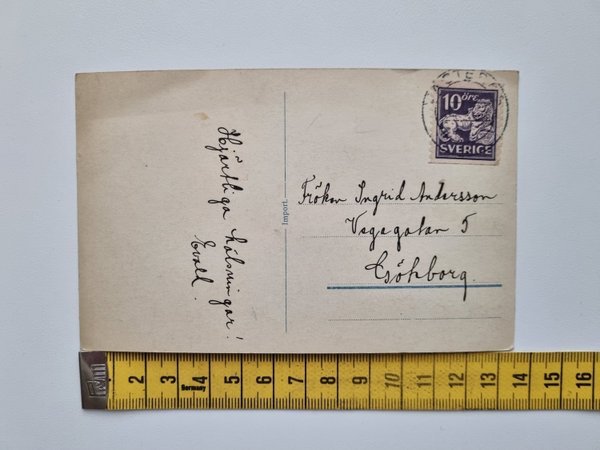 Hjärtliga hälsningar!
Evald.
Import.
10 ÖRE
SVERIGE
Fröken Ingrid Andersson
Vegagatan 5
Göthborg.
1 2 3 4 5 6 7 8 9 10 11 12 13 14 15 16
Germany